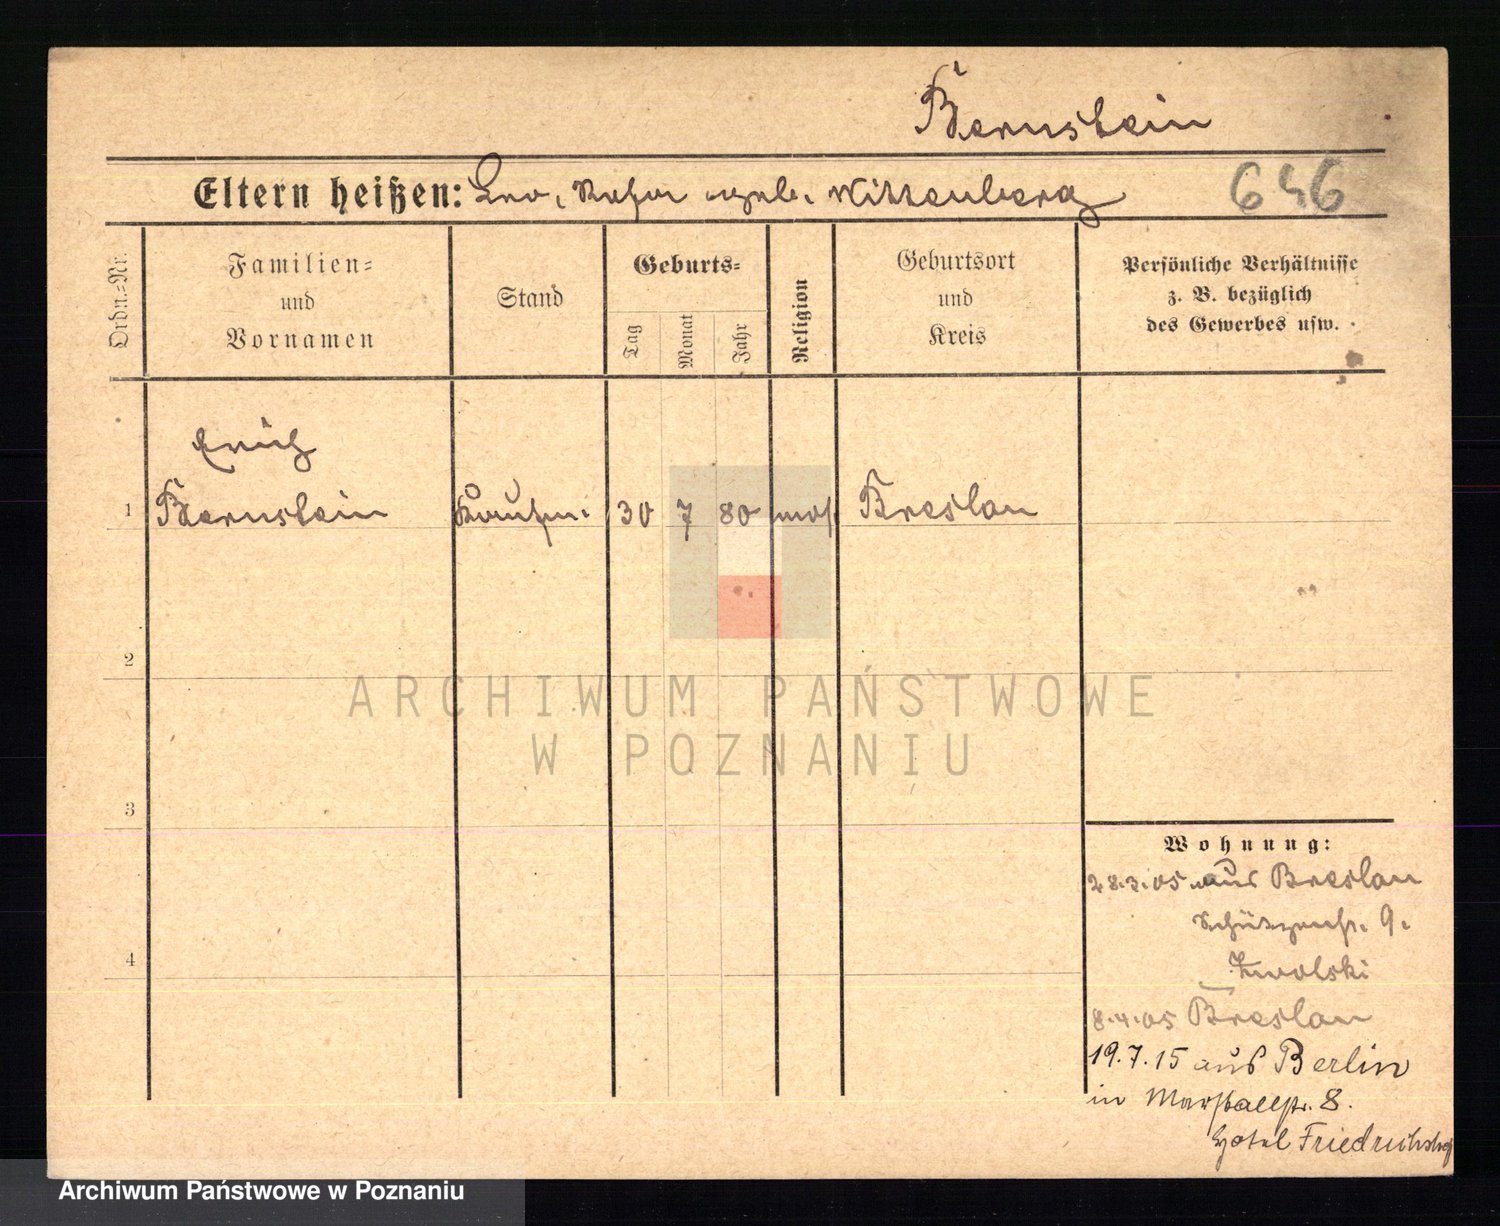 Bernstein
Eltern heißen: Leo, geb. Wittenberg
646
Ordn.=Nr.
Familien=
und
Vornamen
Stand
Geburts=
Tag
Monat
Jahr
Religion
Geburtsort
und
Kreis
Persönliche Verhältnisse
z. B. bezüglich
des Gewerbes usw.
Erich
1 Bernstein Kaufm. 30 7 80 mos. Breslau
2
ARCHIWUM PAŃSTWOWE
W POZNANIU
3
Wohnung:
28.3.05 aus Breslau
Schützenstr. 9.
Zwolski
4
8.4.05 Breslau
19.7.15 aus Berlin
in Marstallstr. 8.
Hotel Friedrichshof
Archiwum Państwowe w Poznaniu